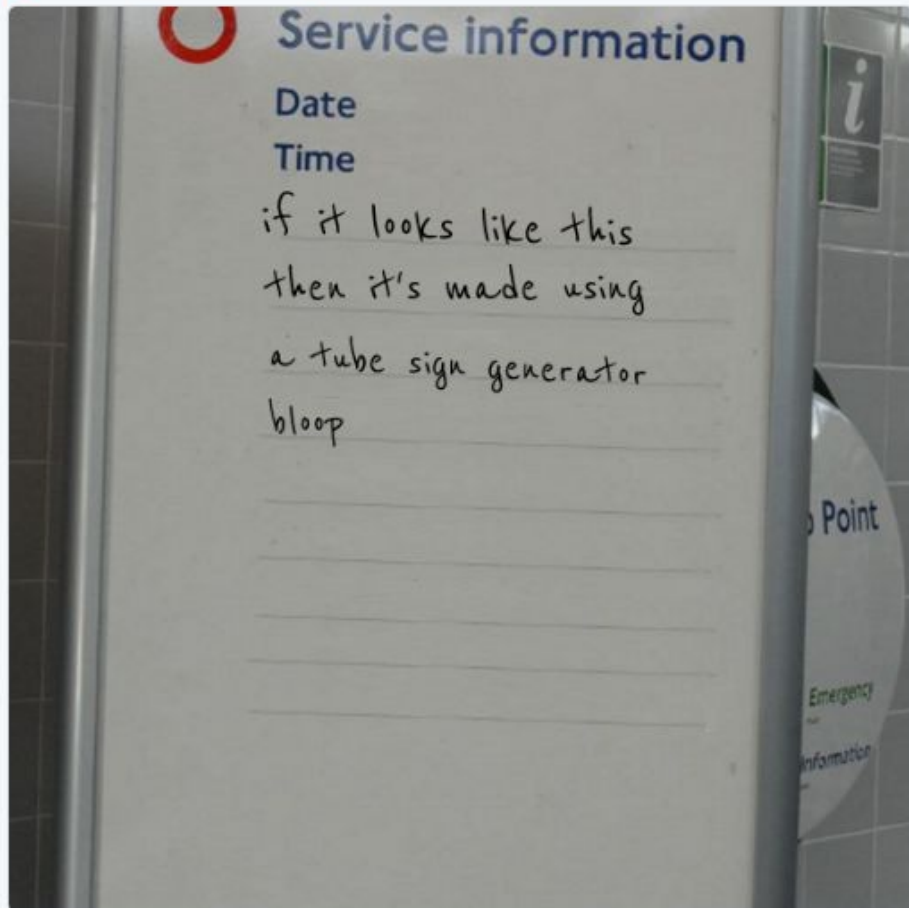 Service information
Date
Time
if it looks like this
then it's made using
a tube sign generator
bloop
i
Point
Emergency
Information